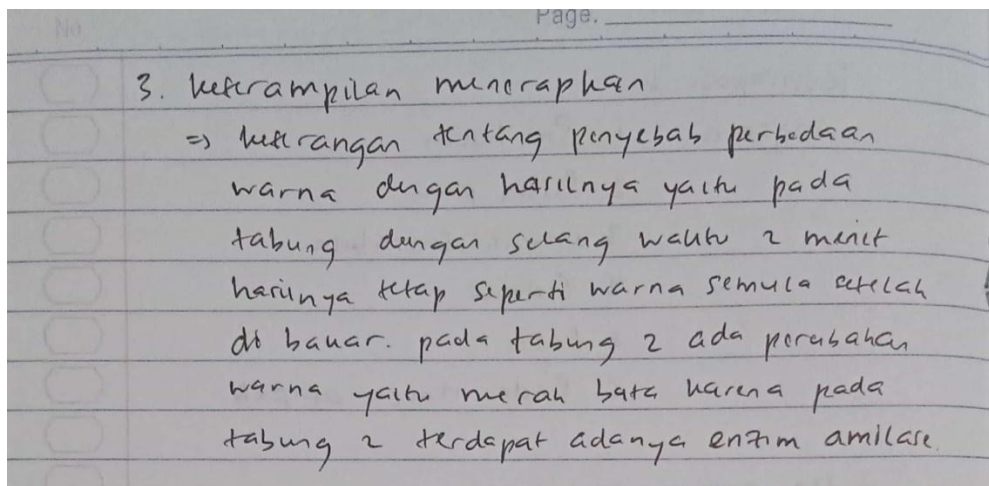 No
Page.
3. keterampilan menerapkan
=> keterangan tentang penyebab perbedaan
warna dengan hasilnya yaitu pada
tabung dengan selang waktu 2 menit
hasilnya tetap seperti warna semula setelah
di bakar. pada tabung 2 ada perubahan
warna yaitu merah bata karena pada
tabung 2 terdapat adanya enzim amilase.